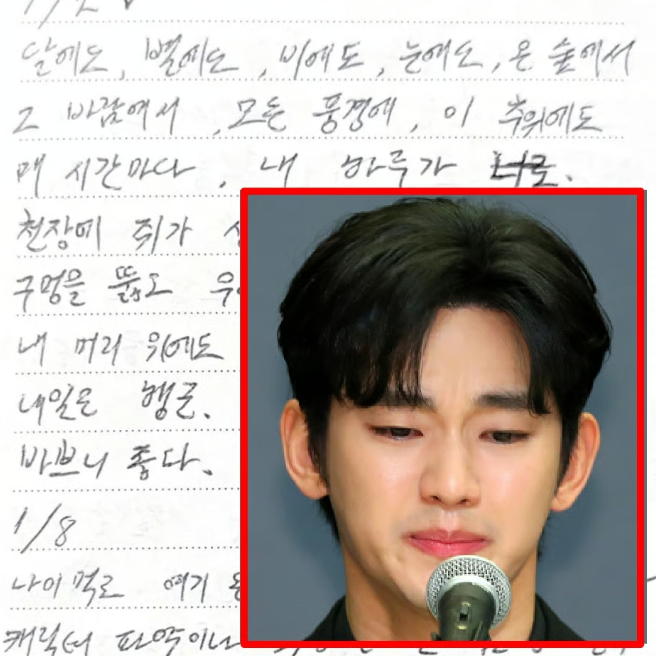 달에도, 별에도, 비에도, 눈에도, 온 숲에서
그 바람에서, 모든 풍경에, 이 추위에도
매 시간마다, 내 하루가 너로.
천장에 쥐가
구멍을 뚫도
내 머리 위에도
내일은 행군.
바쁘니 좋다.
1/8
나이 먹고 여기
캐릭터